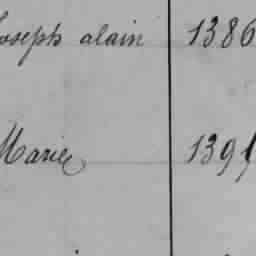 Joseph alain 1386
Marie 1391